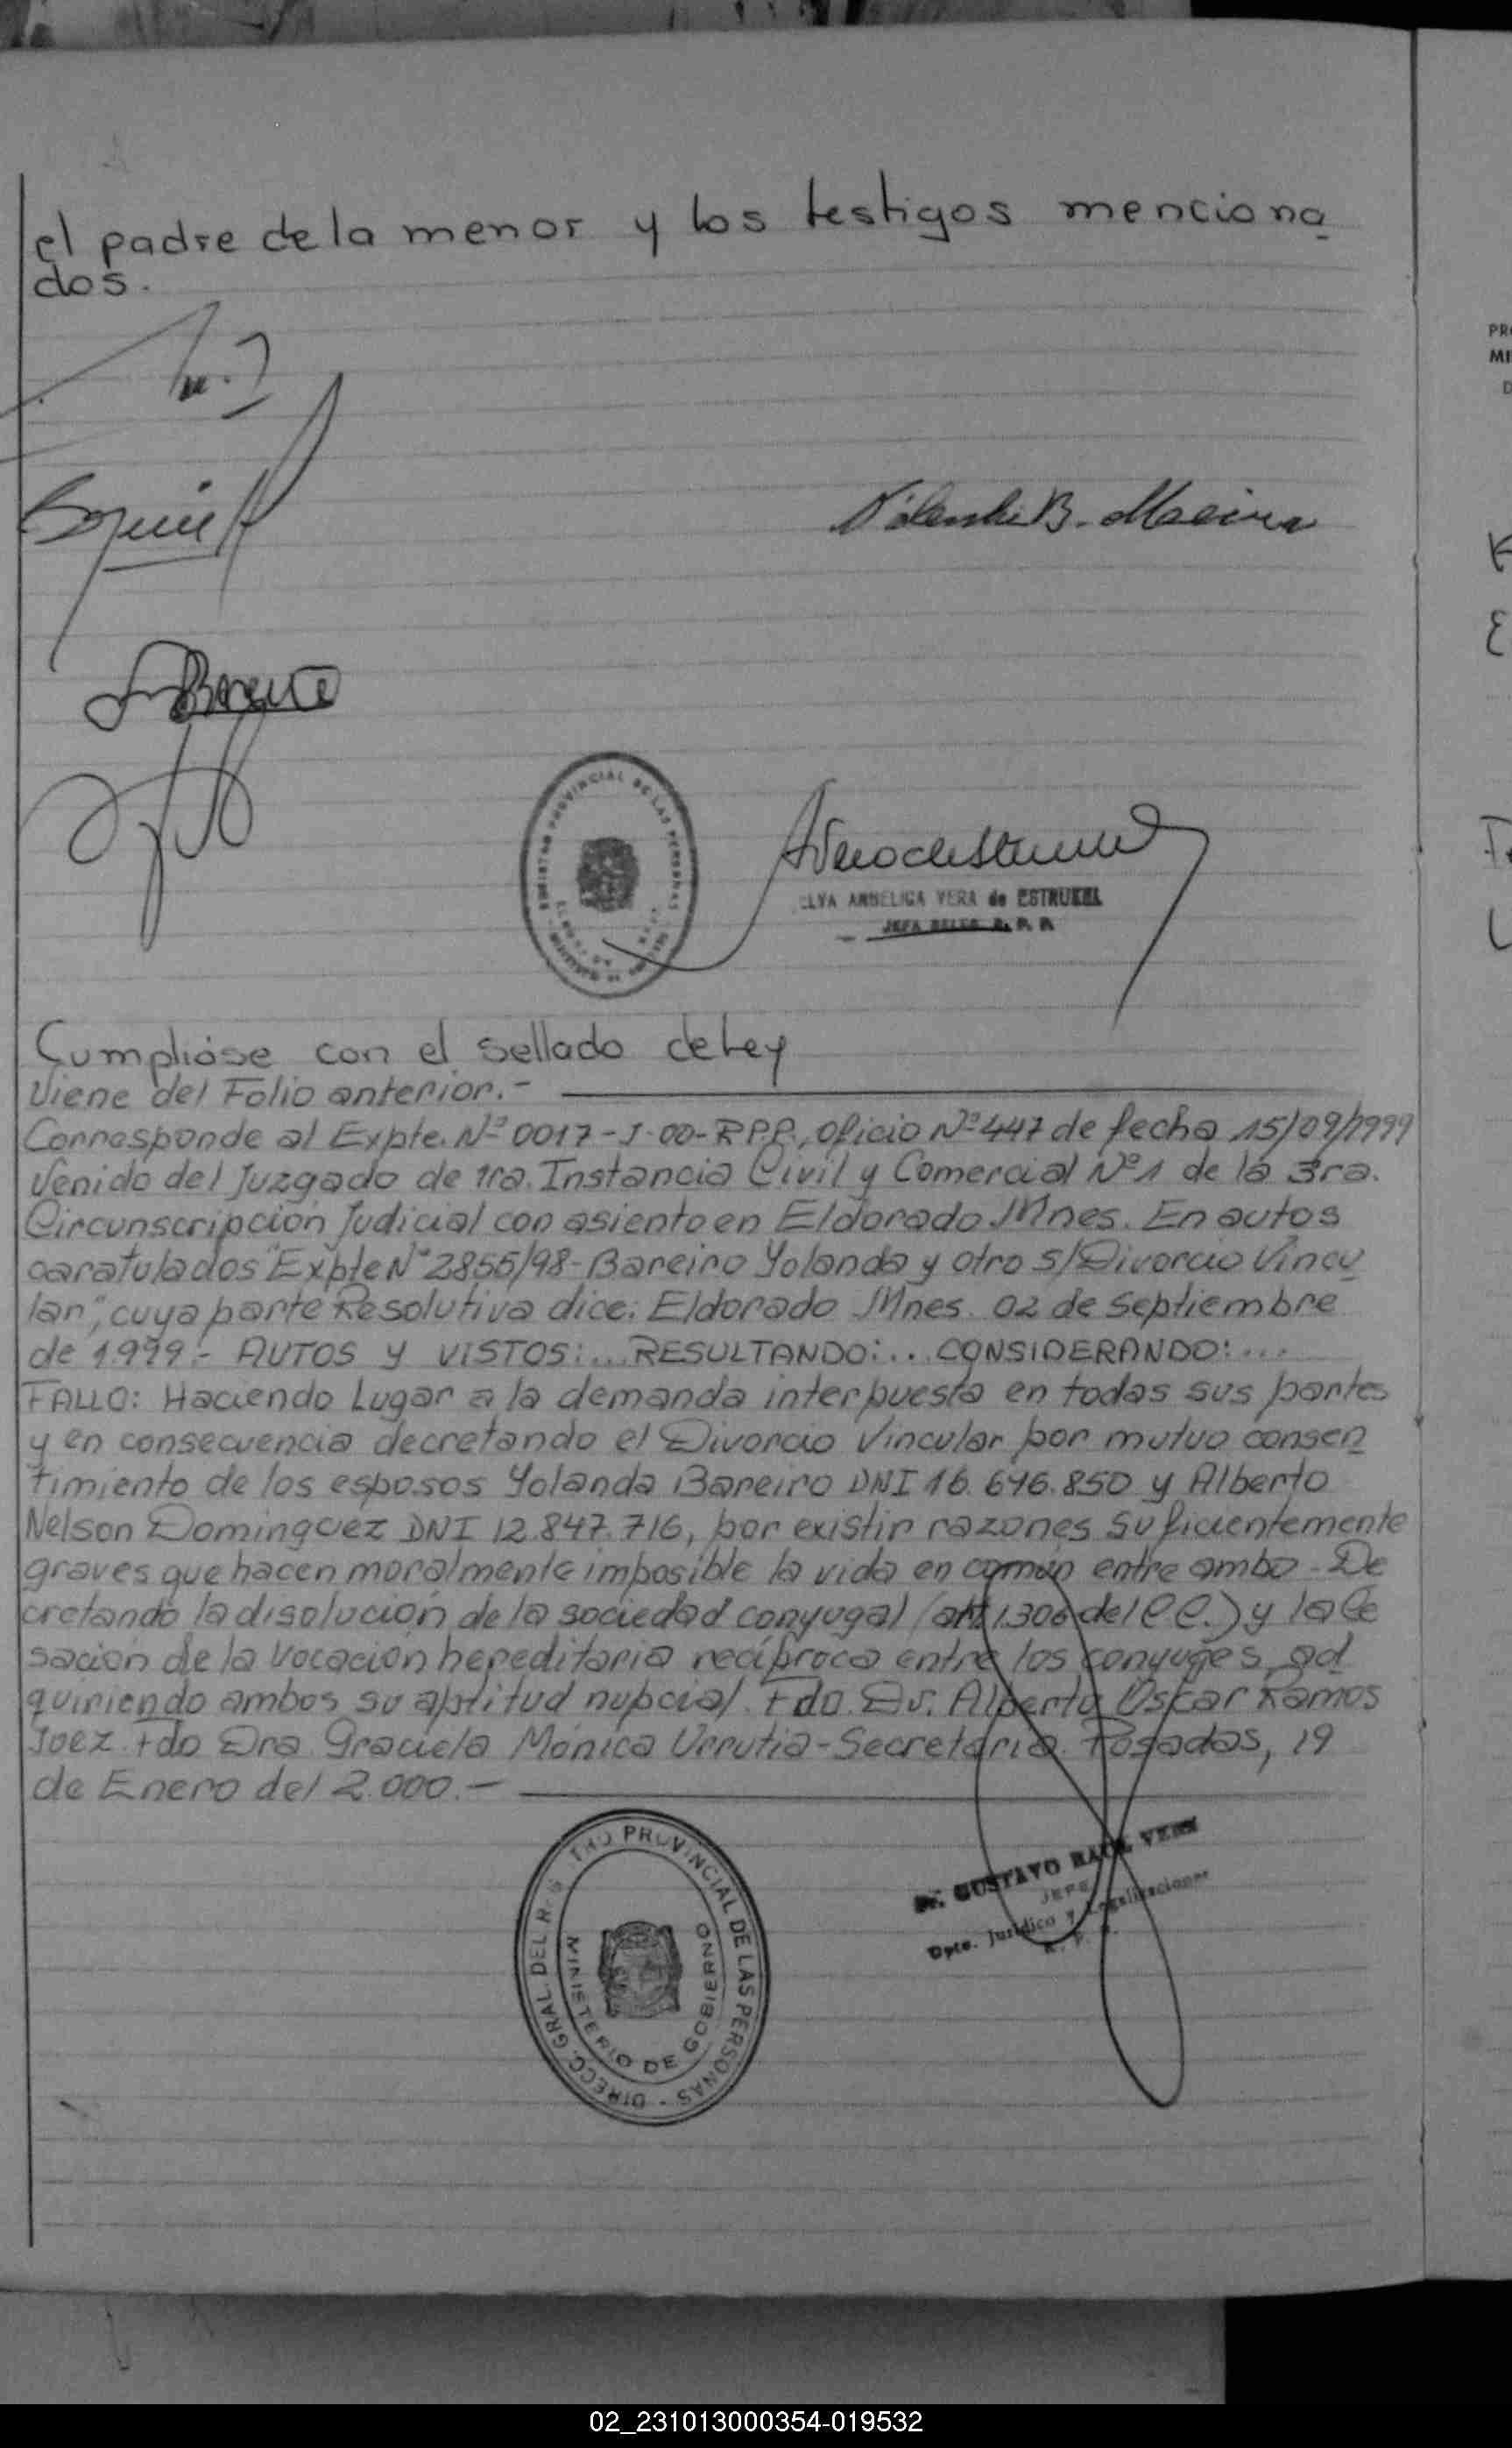 el padre de la menor y los testigos menciona
dos.
B. Moreira
REGISTRO PROVINCIAL DE LAS PERSONAS
ELVA ANGELICA VERA de ESTRUKEL
JEFA DELEG. R. P. P.
Cumplióse con el sellado de Ley
Viene del Folio anterior.-
Corresponde al Expte. Nº 0017-J-00-R.P.P., oficio Nº 447 de fecha 15/09/1999
Venido del Juzgado de 1ra. Instancia Civil y Comercial Nº 1 de la 3ra.
Circunscripción Judicial con asiento en Eldorado Mnes. En autos
caratulados "Expte Nº 2855/98-Bareiro Yolanda y otro s/Divorcio Vincu
lar", cuya parte Resolutiva dice: Eldorado Mnes. 02 de Septiembre
de 1.999.- AUTOS Y VISTOS:... RESULTANDO:... CONSIDERANDO:...
FALLO: Haciendo Lugar a la demanda interpuesta en todas sus partes
y en consecuencia decretando el Divorcio Vincular por mutuo consen
timiento de los esposos Yolanda Bareiro DNI 16.696.850 y Alberto
Nelson Dominguez DNI 12.847.716, por existir razones suficientemente
graves que hacen moralmente imposible la vida en común entre ambo - De
cretando la disolución de la sociedad conyugal (art 1.306 del C C.) y la Ce
sación de la vocación hereditaria recíproca entre los conyuges, ad
quiriendo ambos su aptitud nupcial. Fdo. Dr. Alberto Oscar Ramos
Juez. Fdo Dra. Graciela Mónica Urrutia-Secretaria. Posadas, 19
de Enero del 2.000.-
DIRECC. GRAL. DEL REGISTRO PROVINCIAL DE LAS PERSONAS -
MINISTERIO DE GOBIERNO
Dr. GUSTAVO RAUL VERA
JEFE
Dpto. Jurídico y Legalizaciones
R. P. P.
02_231013000354-019532